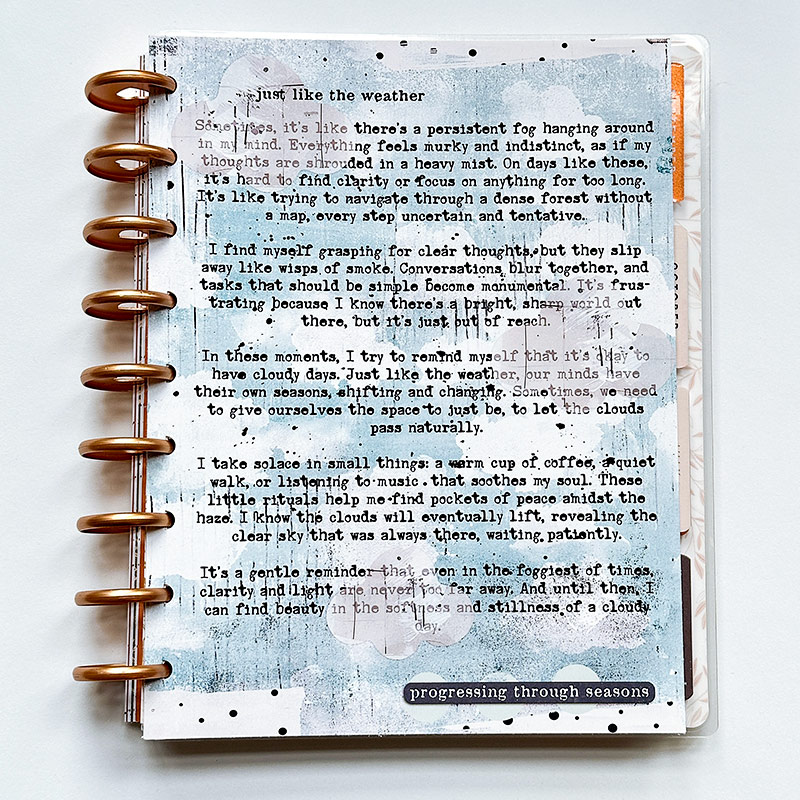 just like the weather
Sometimes, it's like there's a persistent fog hanging around
in my mind. Everything feels murky and indistinct, as if my
thoughts are shrouded in a heavy mist. On days like these,
it's hard to find clarity or focus on anything for too long.
It's like trying to navigate through a dense forest without
a map, every step uncertain and tentative.
I find myself grasping for clear thoughts, but they slip
away like wisps of smoke. Conversations blur together, and
tasks that should be simple become monumental. It's frus-
trating because I know there's a bright, sharp world out
there, but it's just out of reach.
In these moments, I try to remind myself that it's okay to
have cloudy days. Just like the weather, our minds have
their own seasons, shifting and changing. Sometimes, we need
to give ourselves the space to just be, to let the clouds
pass naturally.
I take solace in small things: a warm cup of coffee, a quiet
walk, or listening to music that soothes my soul. These
little rituals help me find pockets of peace amidst the
haze. I know the clouds will eventually lift, revealing the
clear sky that was always there, waiting patiently.
It's a gentle reminder that even in the foggiest of times,
clarity and light are never too far away. And until then, I
can find beauty in the softness and stillness of a cloudy
day.
progressing through seasons